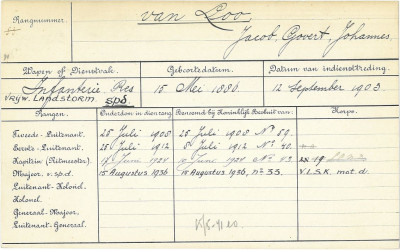 Rangnummer.
van Loo
Jacob, Govert, Johannes
Wapen of Dienstvak. Geboortedatum. Datum van indiensttreding.
Infanterie. Res
Vrijw. Landstorm spd. 15 Mei 1886. 12 September 1903
Rangen. Ouderdom in dien rang Benoemd bij Koninklijk Besluit van: Korps.
Tweede-Luitenant. 25 Juli 1908 25 Juli 1908 No 59.
Eerste-Luitenant. 25 Juli 1912 Juli 1912 No 40.
Kapitein (Ritmeester) Juni 1924 Juni 1924 No
Majoor. v. spd. 15 Augustus 1936 Augustus 1936, no. 33. V.L.S.K. mot. d.
Luitenant-Kolonel.
Kolonel.
Generaal-Majoor.
Luitenant-Generaal.